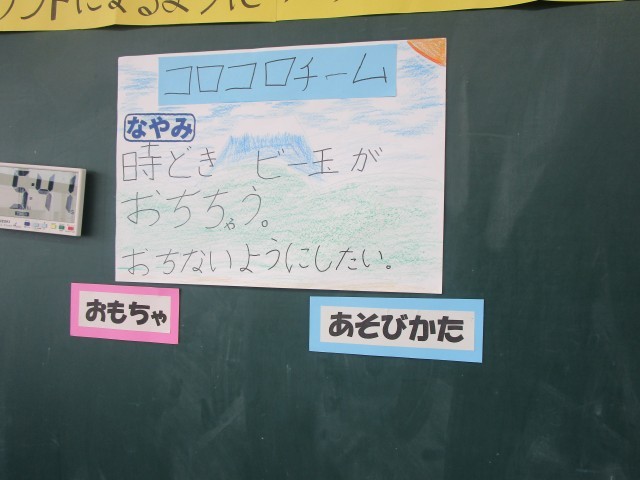 ントになるように
コロコロチーム
なやみ
時どき ビー玉が
おちちゃう。
おちないようにしたい。
5:41
おもちゃ
あそびかた